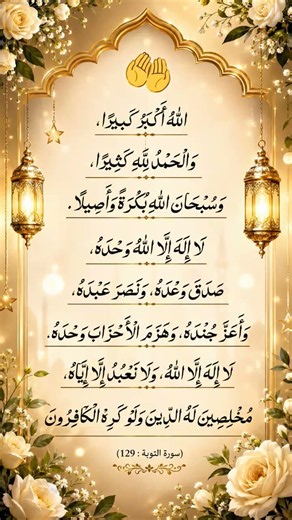 اللهُ أَكْبَرُ كَبِيرًا،
وَالْحَمْدُ لِلَّهِ كَثِيرًا،
وَسُبْحَانَ اللهِ بُكْرَةً وَأَصِيلًا.
لَا إِلَهَ إِلَّا اللهُ وَحْدَهُ،
صَدَقَ وَعْدَهُ، وَنَصَرَ عَبْدَهُ،
وَأَعَزَّ جُنْدَهُ، وَهَزَمَ الْأَحْزَابَ وَحْدَهُ.
لَا إِلَهَ إِلَّا اللهُ، وَلَا نَعْبُدُ إِلَّا إِيَّاهُ،
مُخْلِصِينَ لَهُ الدِّينَ وَلَوْ كَرِهَ الْكَافِرُونَ
(سورة التوبة : 129)